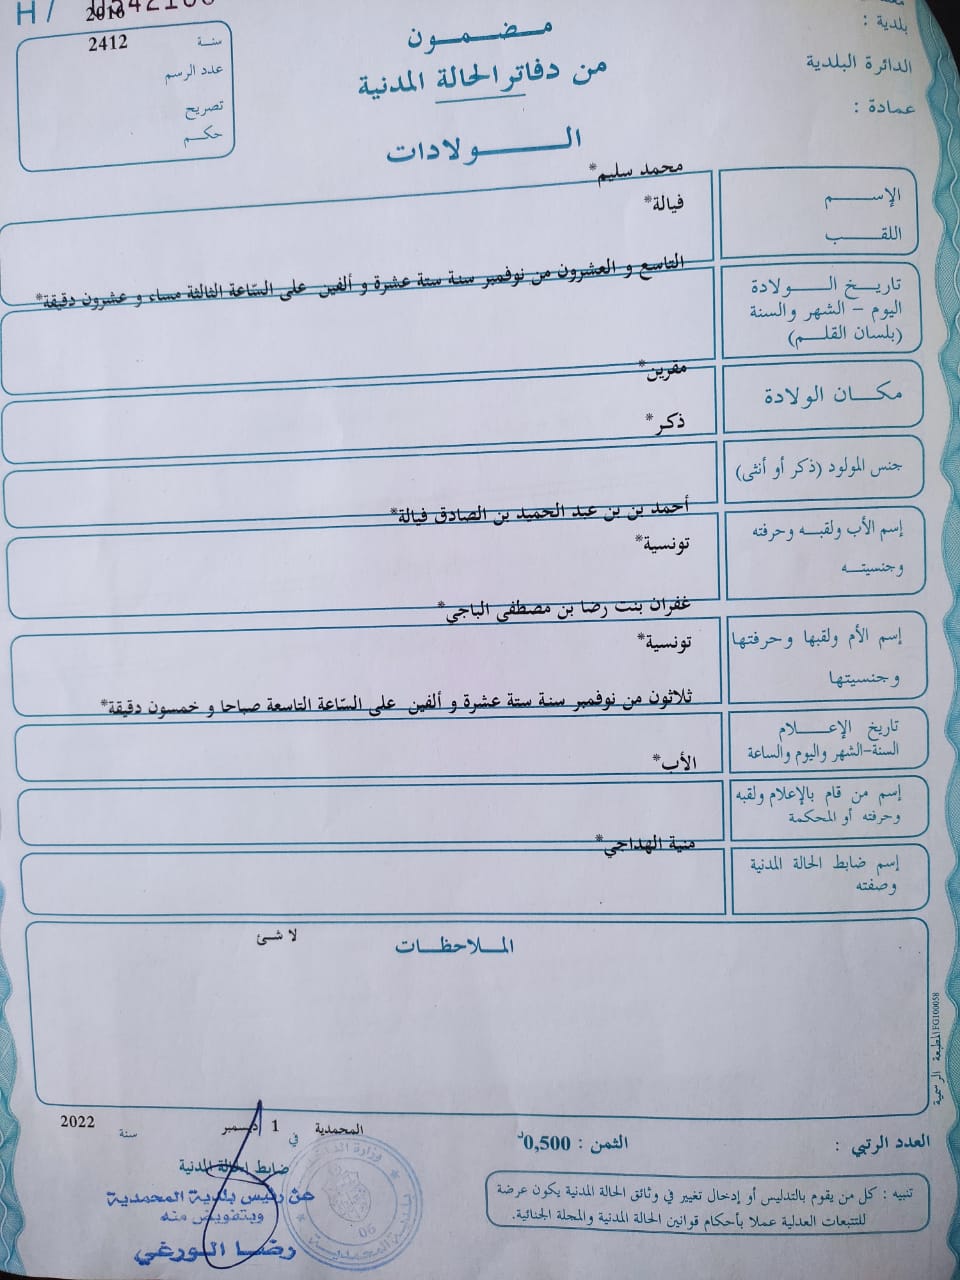 بلدية :
الدائرة البلدية
عمادة :
مـضـمـــون
من دفاتر الحالة المدنية
الـــولادات
H7
2016
سنة
2412
عدد الرسم
تصريح
حكـم
الإســـم
محمد سليم*
اللقـــب
فيالة*
تاريـخ الـــولادة
اليوم - الشهر والسنة
(بلسان القلـــم)
التاسع و العشرون من نوفمبر سنة ستة عشرة و ألفين على السّاعة الثالثة مساء و عشرون دقيقة*
مكـــان الولادة
مقرين*
جنس المولود (ذكر أو أنثى)
ذكر*
إسـم الأب ولقبـه وحرفته
وجنسيتـــه
أحمد بن بن عبد الحميد بن الصادق فيالة*
تونسية*
إسم الأم ولقبها وحرفتها
وجنسيتها
غفران بنت رضا بن مصطفى الباجي*
تونسية*
تاريخ الإعـــلام
السنة-الشهر واليوم والساعة
ثلاثون من نوفمبر سنة ستة عشرة و ألفين على السّاعة التاسعة صباحا و خمسون دقيقة*
إسم من قام بالإعلام ولقبه
وحرفته أو المحكمة
الأب*
إسم ضابط الحالة المدنية
وصفته
منية الهداجي*
الملاحظات
لا شئ
المطبعة الرسمية FG100058
العدد الرتبي :
الثمن : 0,500د
المحمدية في 1 ديسمبر سنة 2022
ضابط الحالة المدنية
عن رئيس بلدية المحمدية
وبتفويض منه
رضا الورغي
06
تنبيه : كل من يقوم بالتدليس أو إدخال تغيير في وثائق الحالة المدنية يكون عرضة
للتتبعات العدلية عملا بأحكام قوانين الحالة المدنية والمجلة الجنائية.